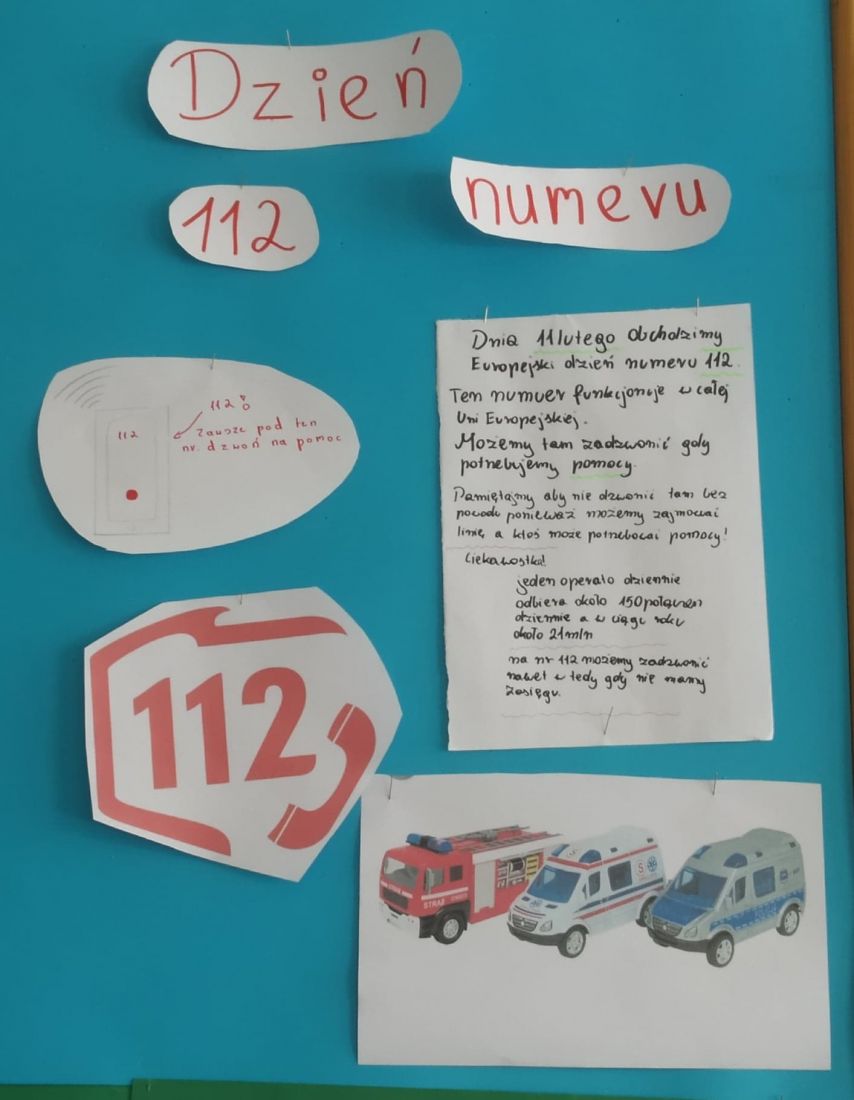 Dzień
112
numeru
Dnia 11 lutego obchodzimy
Europejski dzień numeru 112.
Ten numer funkcjonuje w całej
Uni Europejskiej.
Możemy tam zadzwonić gdy
potrzebujemy pomocy.
Pamiętajmy aby nie dzwonić tam bez
powodu ponieważ możemy zajmować
linię a ktoś może potrzebować pomocy!
Ciekawostka!
jeden operato dziennie
odbiera około 150 połączeń
dziennie a w ciągu roku
około 21 mln
na nr 112 możemy zadzwonić
nawet w tedy gdy nie mamy
zasięgu.
112
112
Zawsze pod ten
nr. dzwoń na pomoc
112
STRAŻ